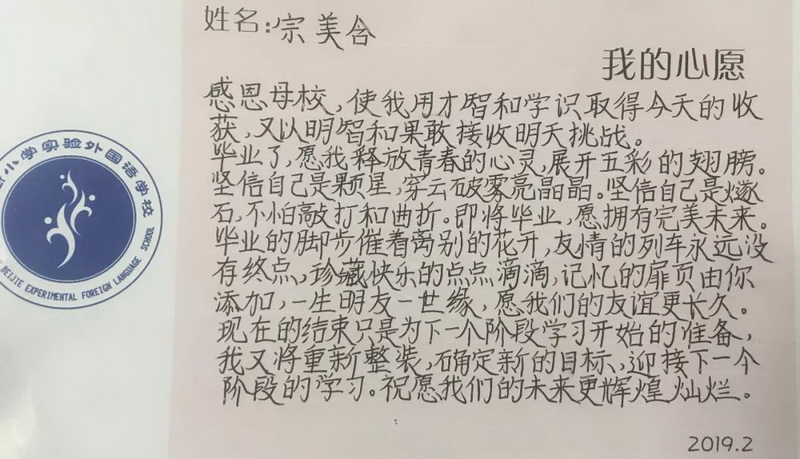 姓名:宗美含
我的心愿
感恩母校,使我用才智和学识取得今天的收
获,又以明智和果敢接收明天挑战。
毕业了,愿我释放青春的心灵,展开五彩的翅膀。
坚信自己是颗星,穿云破雾亮晶晶。坚信自己是燧
石,不怕敲打和曲折。即将毕业,愿拥有完美未来。
毕业的脚步催着离别的花开,友情的列车永远没
有终点,珍藏快乐的点点滴滴,记忆的扉页由你
添加,一生朋友一世缘,愿我们的友谊更长久。
现在的结束只是为下一个阶段学习开始的准备,
我又将重新整装,确定新的目标,迎接下一个
阶段的学习。祝愿我们的未来更辉煌灿烂。
2019.2
小学实验外国语学校
BEIJIE EXPERIMENTAL FOREIGN LANGUAGE SCHOOL